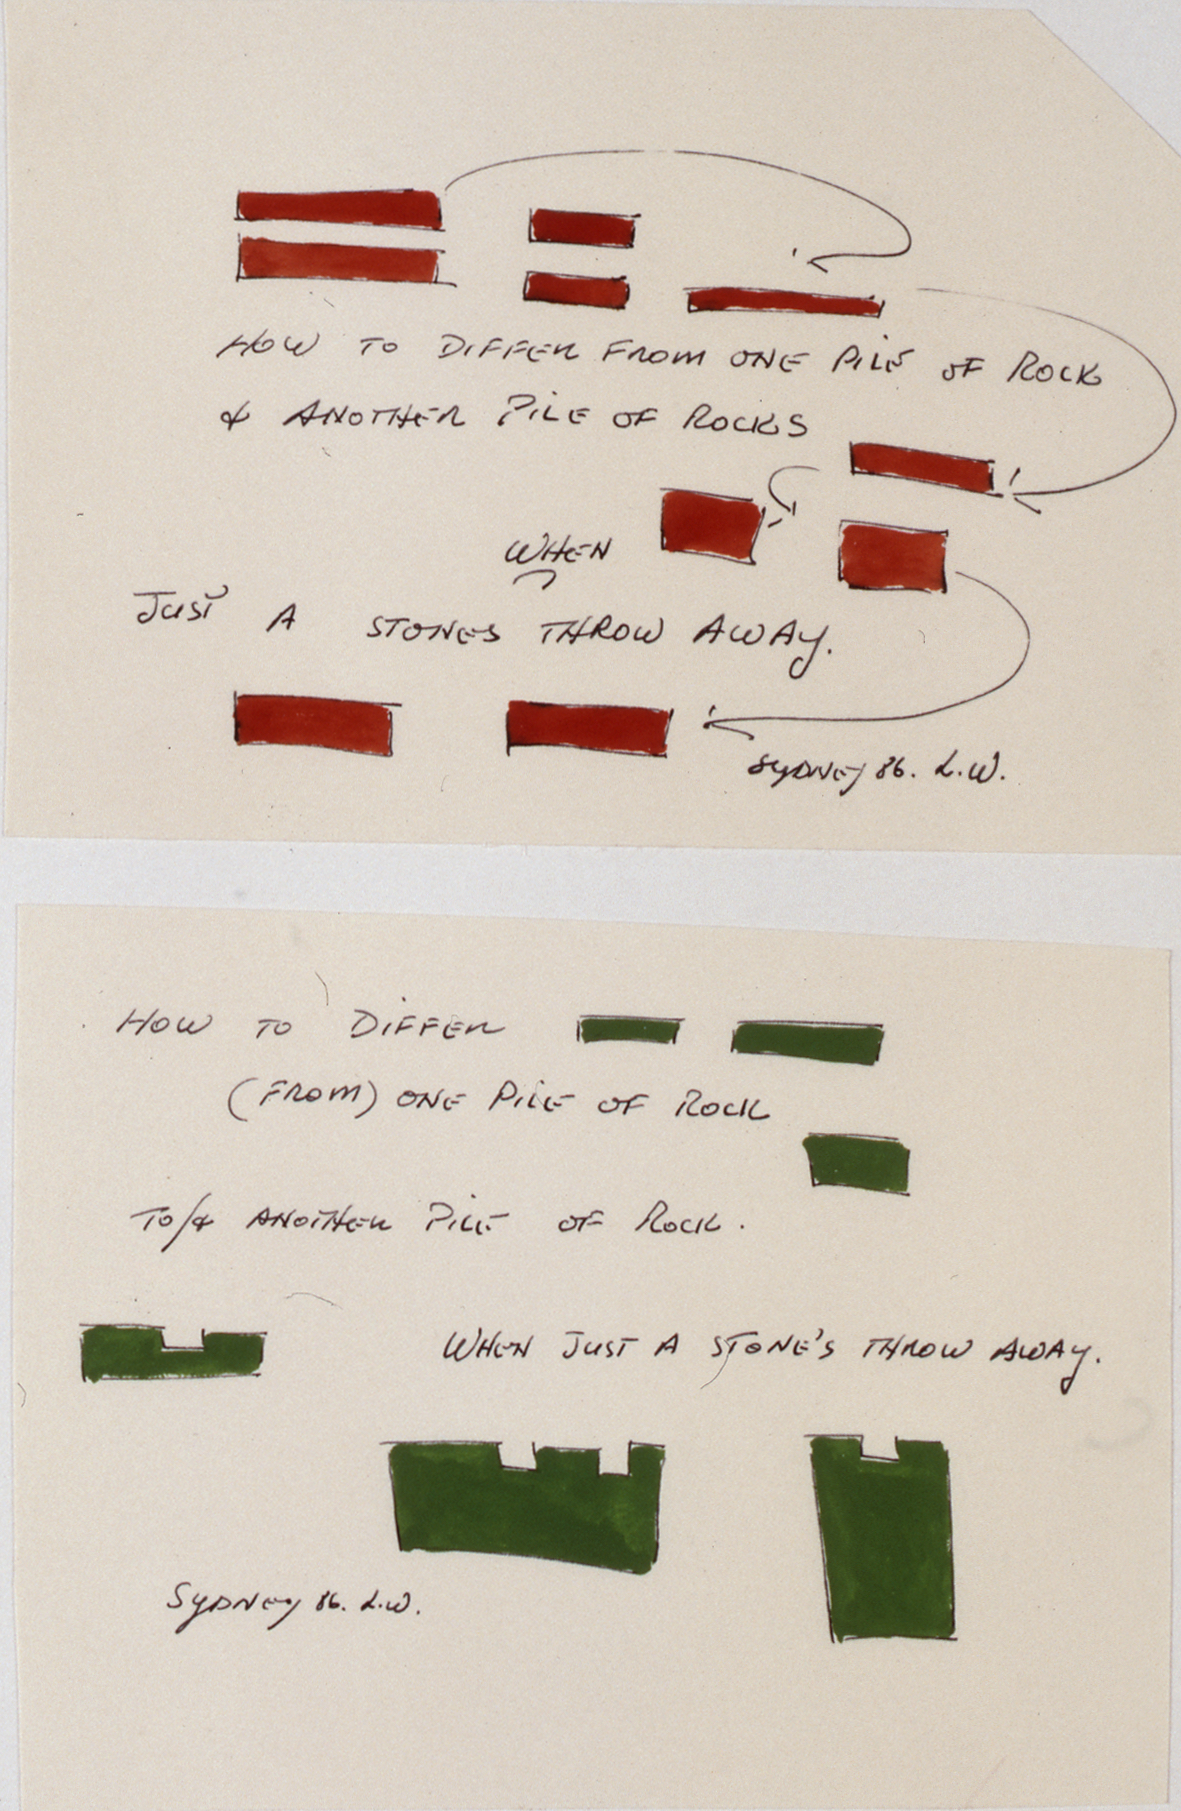 HOW TO DIFFER FROM ONE PILE OF ROCK
& ANOTHER PILE OF ROCKS
WHEN
JUST A STONES THROW AWAY.
SYDNEY 86. L.W.
HOW TO DIFFER
(FROM) ONE PILE OF ROCK
TO/& ANOTHER PILE OF ROCK.
WHEN JUST A STONE'S THROW AWAY.
SYDNEY 86. L.W.